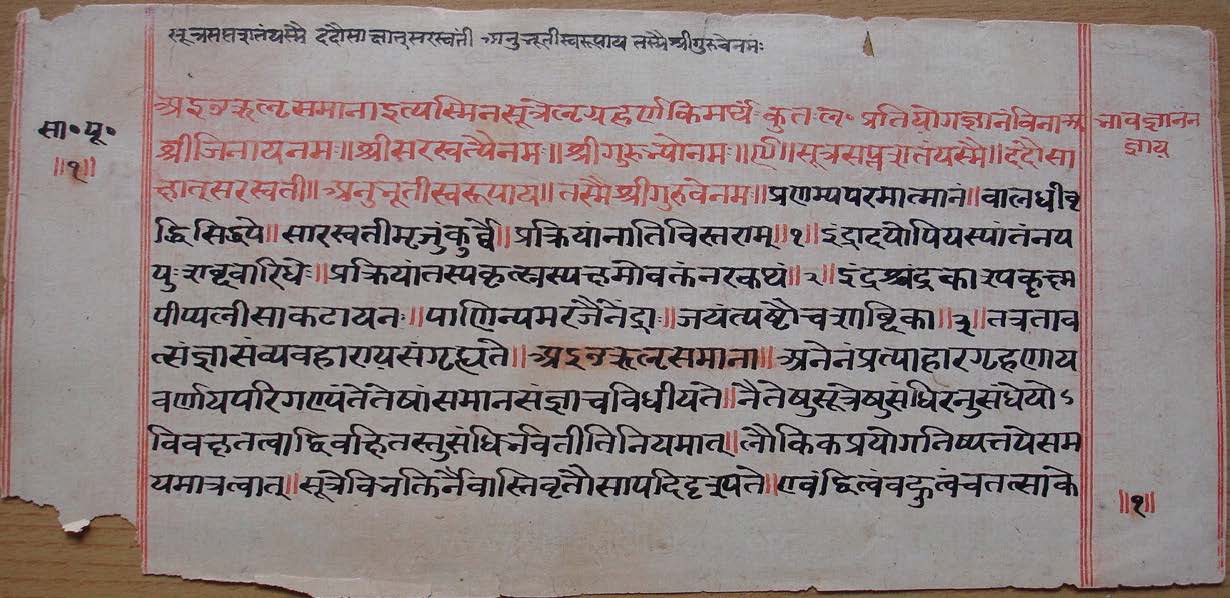 सूत्रसप्तशतंयस्मै ददौसाक्षात्सरस्वती अनुभूतीस्वरूपाय तस्मैश्रीगुरुवेनमः
अइउऋलृसमानाइत्यस्मिनसूत्रेलृग्रहणंकिमर्थं कुतःलृ॰ प्रतियोगज्ञानंविना
सा॰पू॰
श्रीजिनायनमः॥श्रीसरस्वत्यैनमः॥श्रीगुरुभ्योनमः॥ सूत्रसप्तशतंयस्मै॥ददौसा
॥१॥
क्षात्सरस्वती॥अनुभूतीस्वरूपाय॥तस्मैश्रीगुरुवेनमः॥प्रणम्यपरमात्मानं॥बालधीवृ
द्धिसिद्धये॥सारस्वतीमृजुंकुर्वे॥प्रक्रियांनातिविस्तराम्॥१॥इंद्रादयोपियस्यांतंनय
युःशब्दवारिधेः॥प्रक्रियांतस्यकृत्स्नस्यक्षमोवक्तंनरकथं॥२॥इंद्रश्चंद्रकाशपकृत्स्न
पीप्पलीसाकटायनः॥पाणिन्यमरजैनेंद्राः॥जयंत्यष्टौचशाब्दिका॥३॥तत्रताव
त्संज्ञासंव्यवहारायसंगृह्यते॥अइउऋलृसमाना॥अनेनंप्रत्याहारगृहणाय
वर्णायपरिगण्यंतेतेषांसमानसंज्ञाचविधीयंते॥नैतेषुसूत्रेषुसंधिरनुसंधेयोऽ
विवक्षतत्वाद्विवक्षितस्तुसंधिर्भवतीतिनियमात्॥लौकिकप्रयोगनिष्पत्तयेसम
यमात्रत्वात्॥सूत्रेविभक्तिर्नैवास्तिवृतौसापदिदृश्यते॥एवंद्वित्वंबहुत्वंचतत्साके
॥१॥